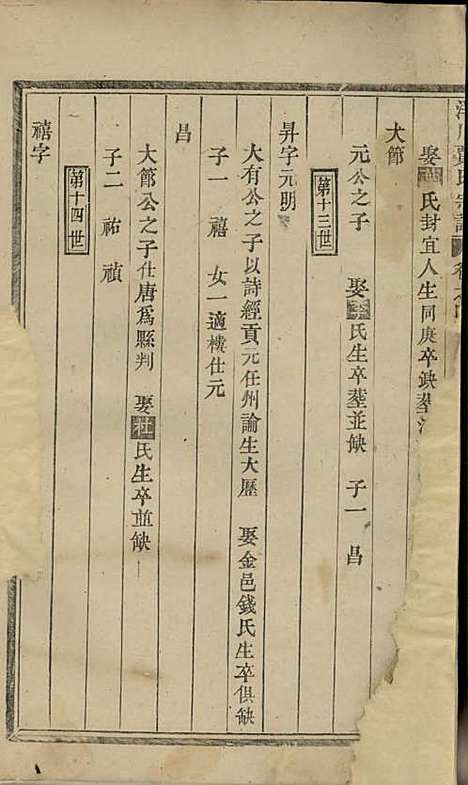 賈氏宗譜
娶黃氏封宜人生同庚卒缺塟
大節
元公之子 娶 氏生卒塟並缺 子一 昌
第十三世
昇字元明
大有公之子以詩經貢元任州諭生大歷 娶金邑錢氏生卒俱缺
子一 禧 女一適樓仕元
昌
大節公之子仕唐爲縣判 娶杜氏生卒並缺
子二 祐 禎
第十四世
禧字